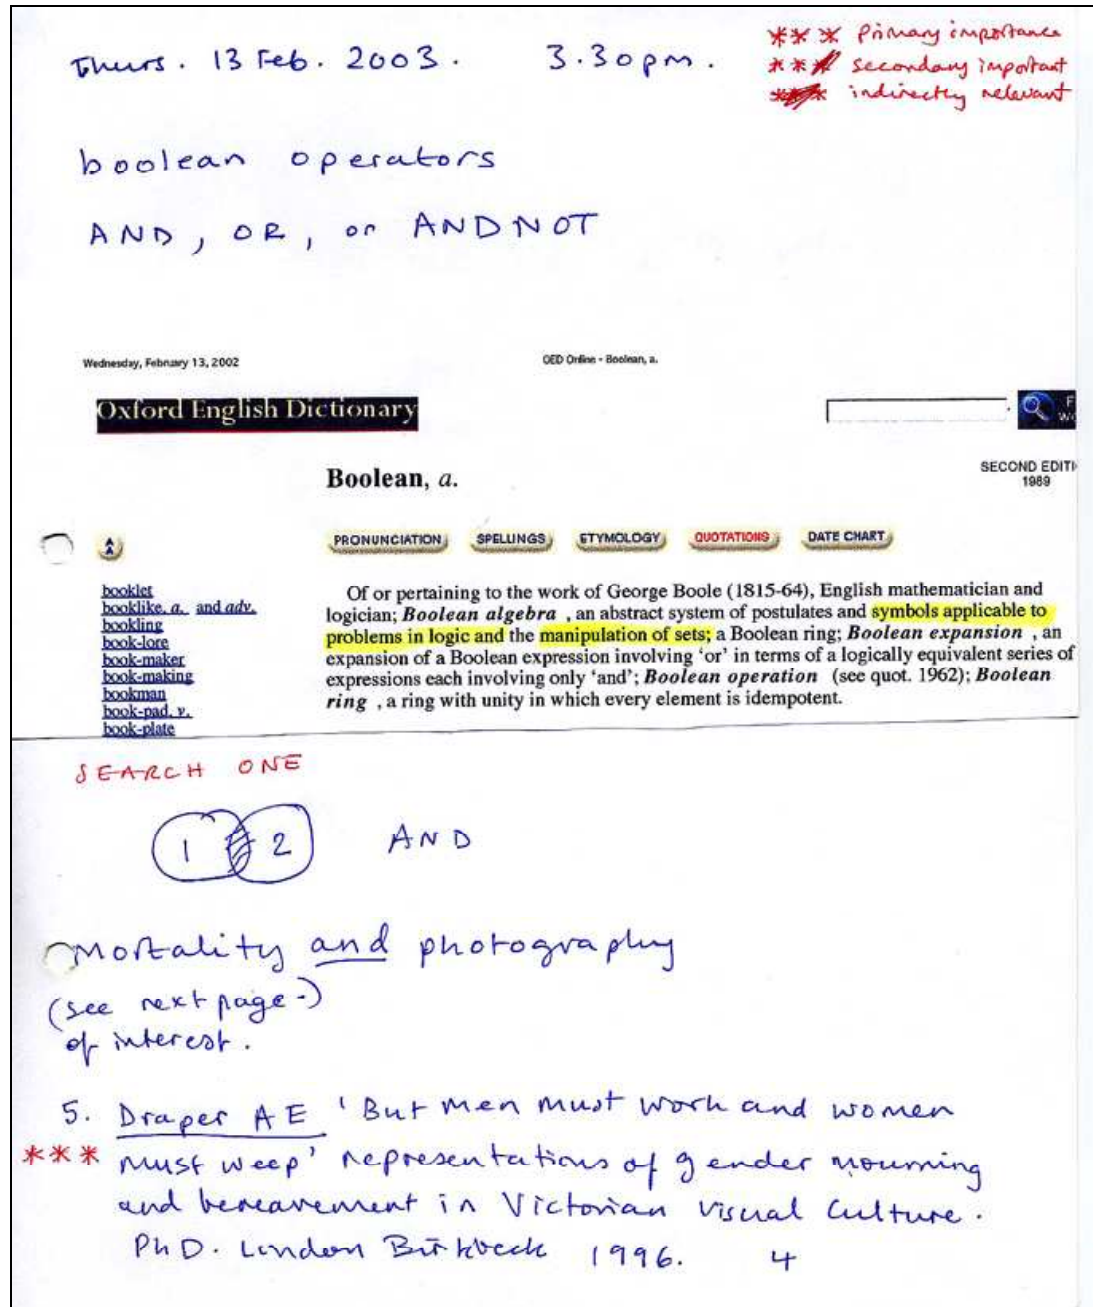 Thurs. 13 Feb. 2003. 3.30pm.
*** Primary importance
*** secondary important
*** indirectly relevant
boolean operators
AND, OR, or ANDNOT
Wednesday, February 13, 2002 OED Online - Boolean, a.
Oxford English Dictionary
Boolean, a.
SECOND EDITI
1989
PRONUNCIATION SPELLINGS ETYMOLOGY QUOTATIONS DATE CHART
booklet
booklike, a. and adv.
bookling
book-lore
book-maker
book-making
bookman
book-pad, v.
book-plate
Of or pertaining to the work of George Boole (1815-64), English mathematician and
logician; Boolean algebra , an abstract system of postulates and symbols applicable to
problems in logic and the manipulation of sets; a Boolean ring; Boolean expansion , an
expansion of a Boolean expression involving ‘or’ in terms of a logically equivalent series of
expressions each involving only ‘and’; Boolean operation (see quot. 1962); Boolean
ring , a ring with unity in which every element is idempotent.
SEARCH ONE
1 2 AND
Mortality and photography
(see next page -)
of interest.
5. Draper AE 'But men must work and women
*** must weep' representations of gender mourning
and bereavement in Victorian visual culture.
PhD. London Birkbeck 1996. 4